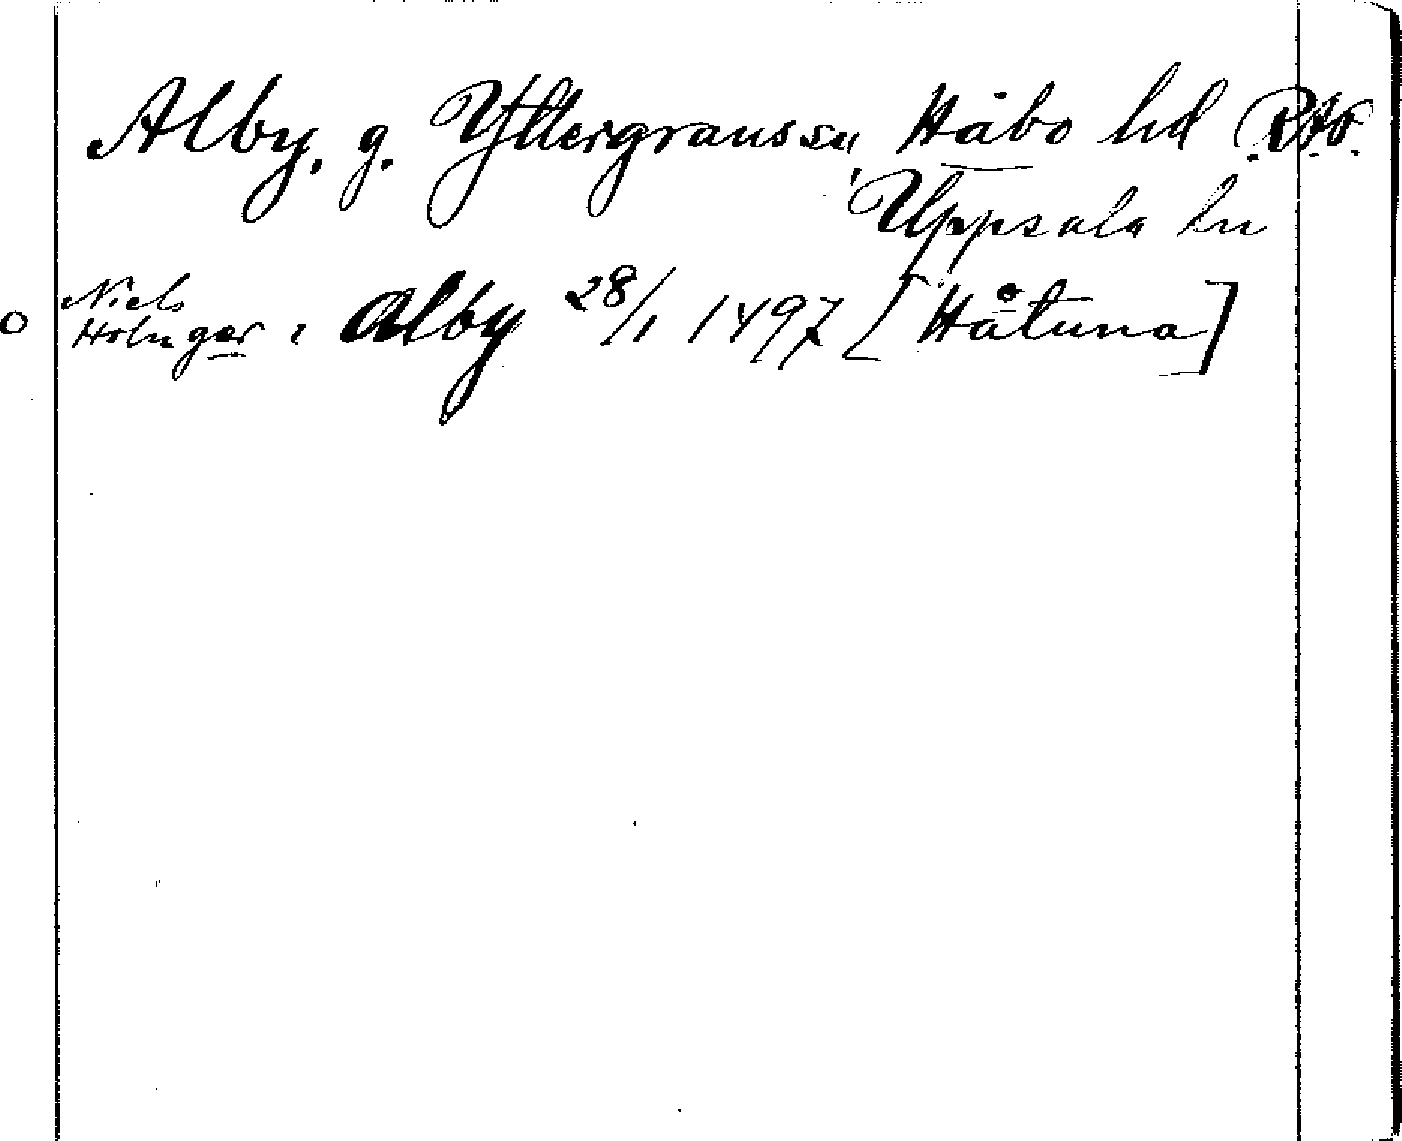 Alby, g. Yttergrans sn, Håbo hd
Uppsala ln
Niels
Holngær i Alby 28/1 1497 [Håtuna]